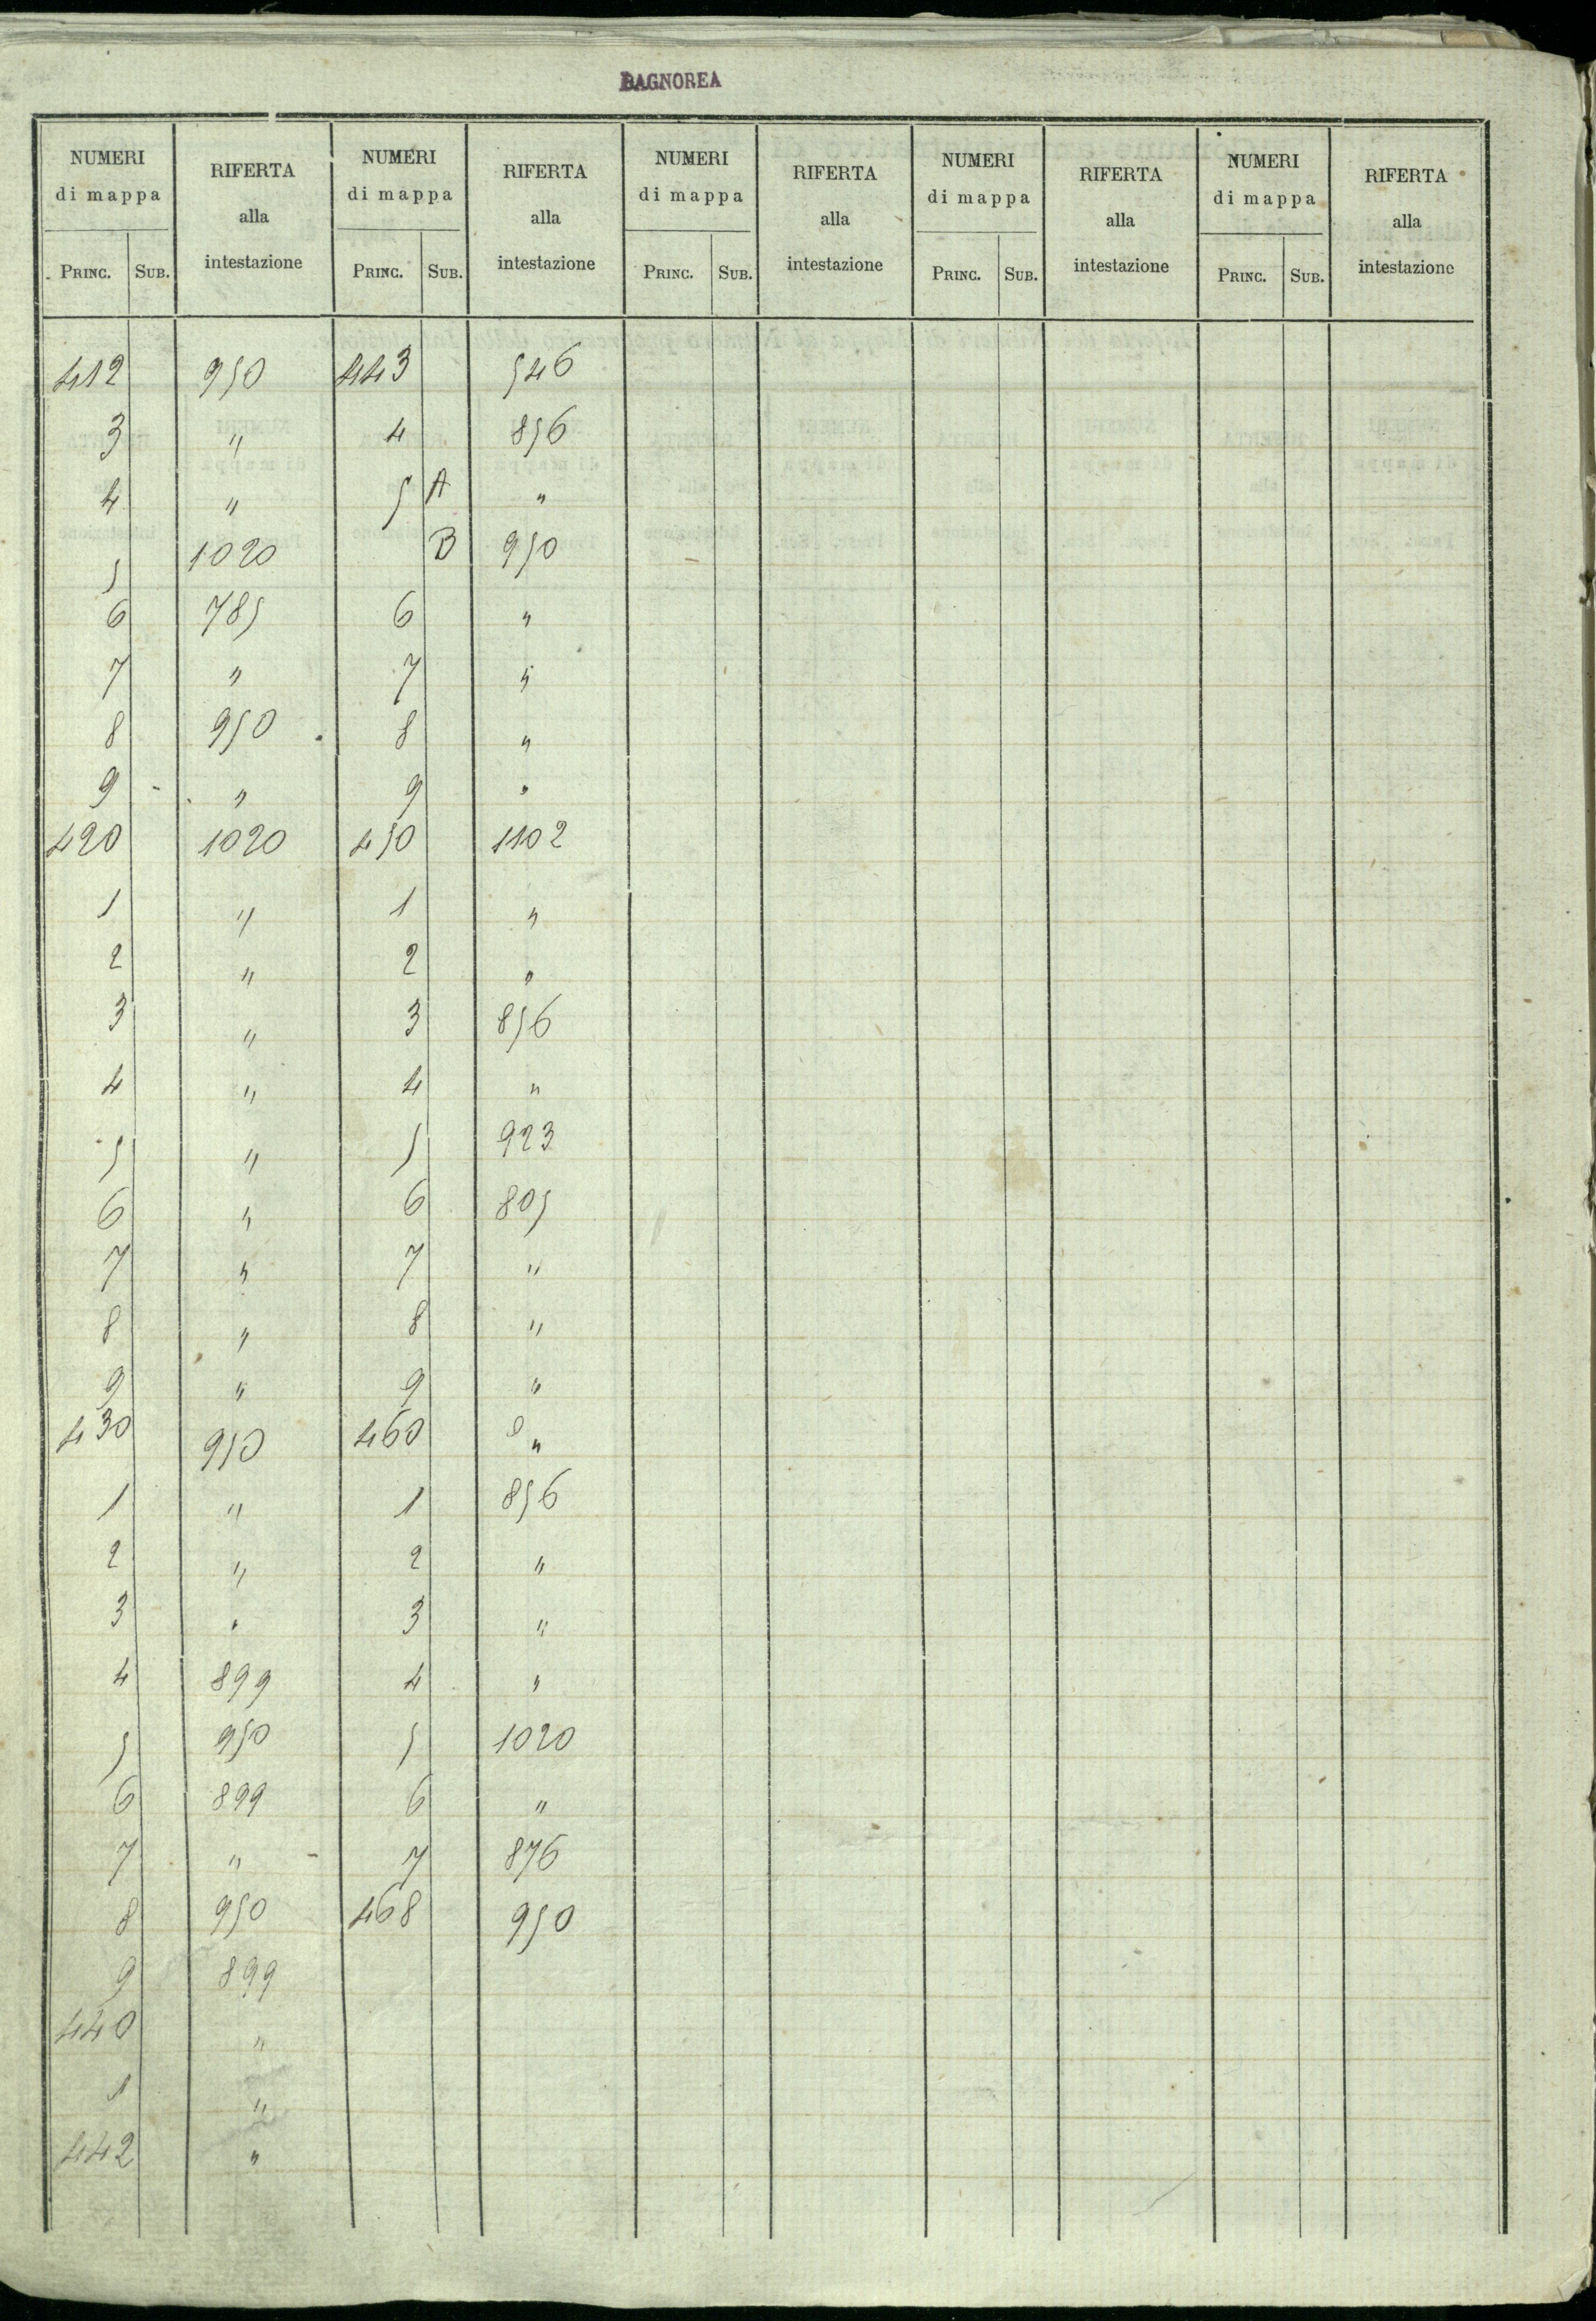 BAGNOREA
NUMERI di mappa RIFERTA alla intestazione NUMERI di mappa RIFERTA alla intestazione NUMERI di mappa RIFERTA alla intestazione NUMERI di mappa RIFERTA alla intestazione NUMERI di mappa RIFERTA alla intestazione
PRINC. SUB. PRINC. SUB. PRINC. SUB. PRINC. SUB. PRINC. SUB.
412 950 443 546
3 " 4 856
4 " 5 A "
5 1020 B 950
6 785 6 "
7 " 7 "
8 950 8 "
9 " 9 "
420 1020 450 1102
1 " 1 "
2 " 2 "
3 " 3 856
4 " 4 "
5 " 5 923
6 " 6 805
7 " 7 "
8 " 8 "
9 " 9 "
430 950 460 "
1 " 1 856
2 " 2 "
3 " 3 "
4 899 4 "
5 950 5 1020
6 899 6 "
7 " 7 876
8 950 468 950
9 899
440 "
1 "
442 "